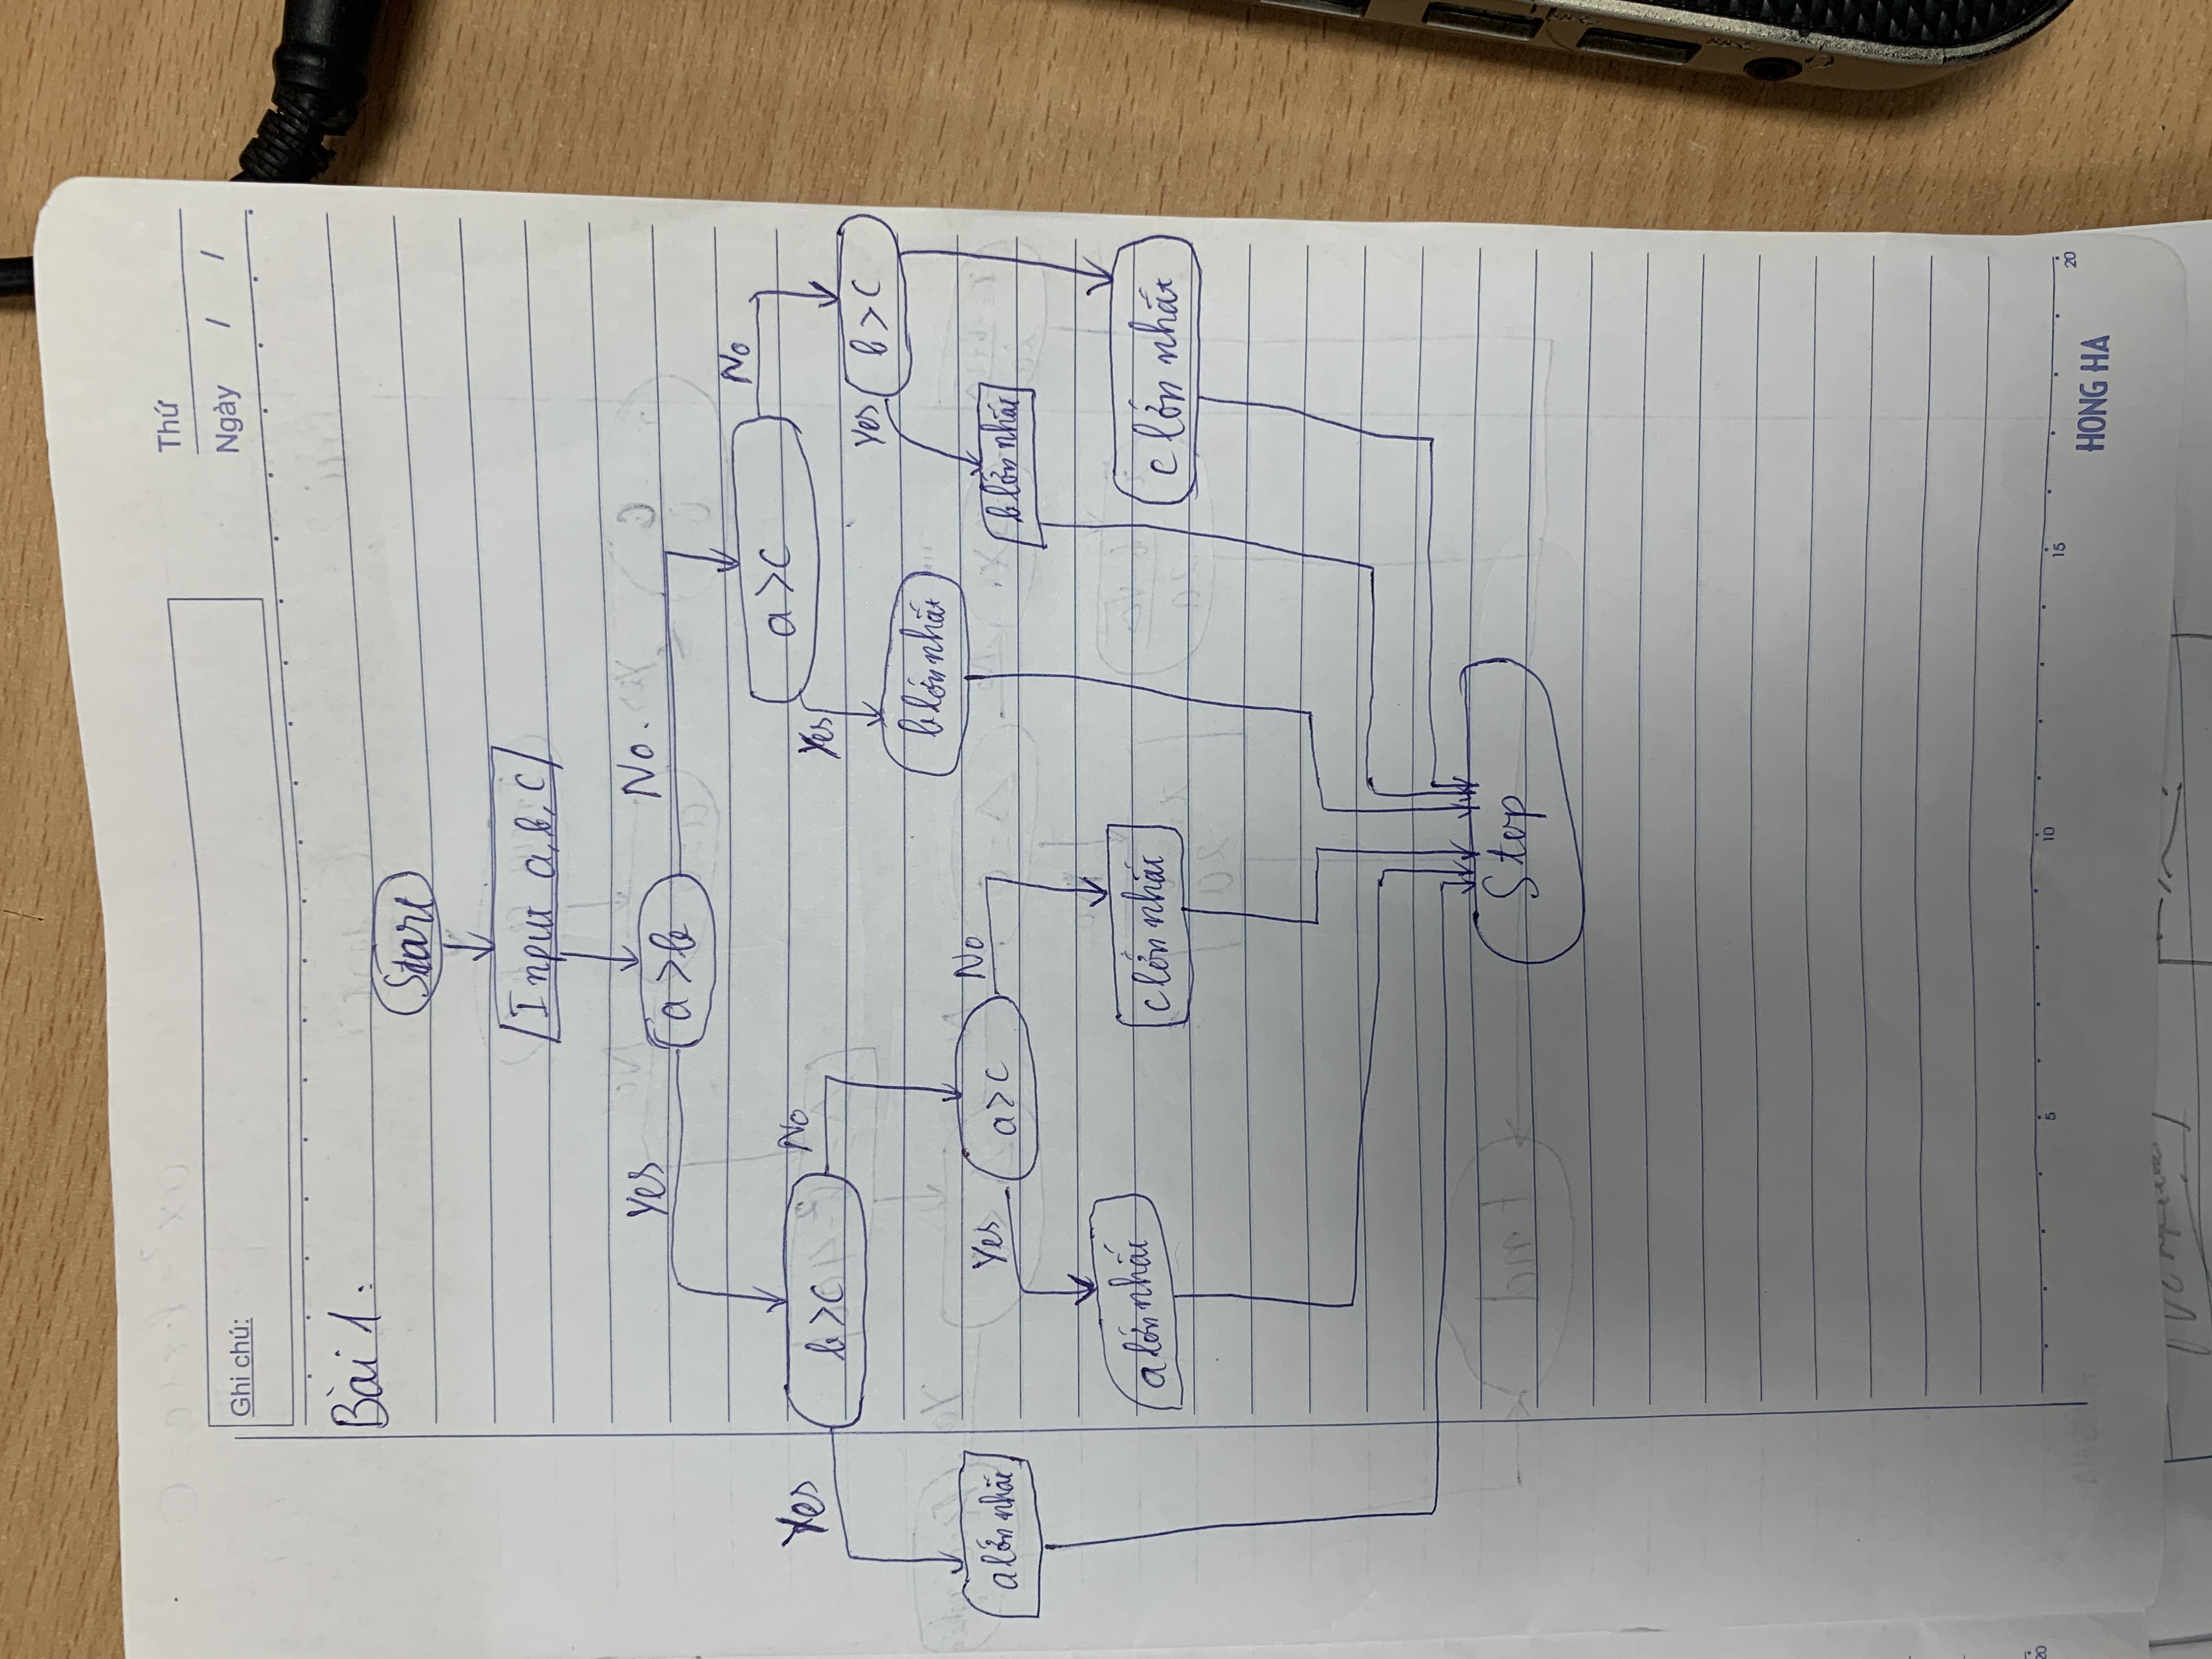 Thứ
Ghi chú:
Ngày / /
Bài 1:
Start
Input a, b, c
Yes
No.
a > b
No
a > c
Yes
b > c
No
Yes
Yes
b > c
b lớn nhất
a lớn nhất
Yes
a > c
No
b lớn nhất
a lớn nhất
c lớn nhất
c lớn nhất
Stop
5
10
15
20
20
HONG HA